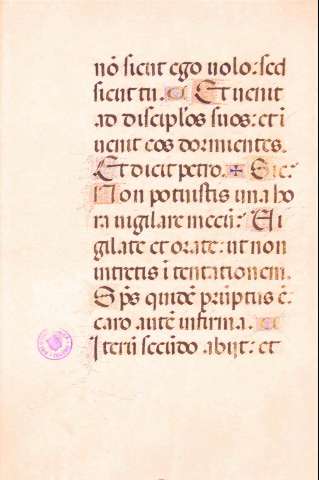 nō sicut ego uolo: sed
sicut tu. C Et uenit
ad discipl'os suos: et ī
uenit eos dormientes.
Et dicit petro. + Sic:
Non potuistis una ho
ra uigilare mecū: C Vi
gilate et orate: ut non
intretis ī tentationem.
Sp̄s quidē prūptus ē:
caro autē infirma. C
Iterū secūdo abijt: et